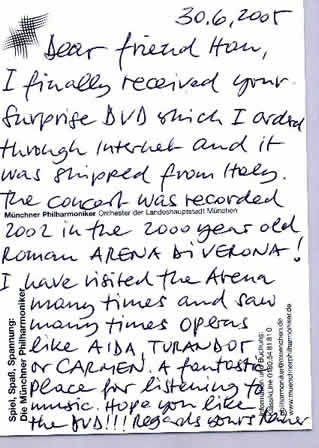 30.6.2005
Dear friend Han,
I finally received your
Surprise DVD which I ordred
through Internet and it
was shipped from Italy.
The concert was recorded
Münchner Philharmoniker Orchester der Landeshauptstadt München
2002 in the 2000 year old
Roman ARENA DI VERONA!
I have visited the Arena
many times and saw
many times operas
like AIDA, TURANDOT
or CARMEN. A fantastic
place for listening to
music. Hope you like
the DVD!!! Regards yours Rainer
Spiel, Spaß, Spannung:
Die Münchner Philharmoniker
Information und Buchung:
www.muenchnerphilharmoniker.de